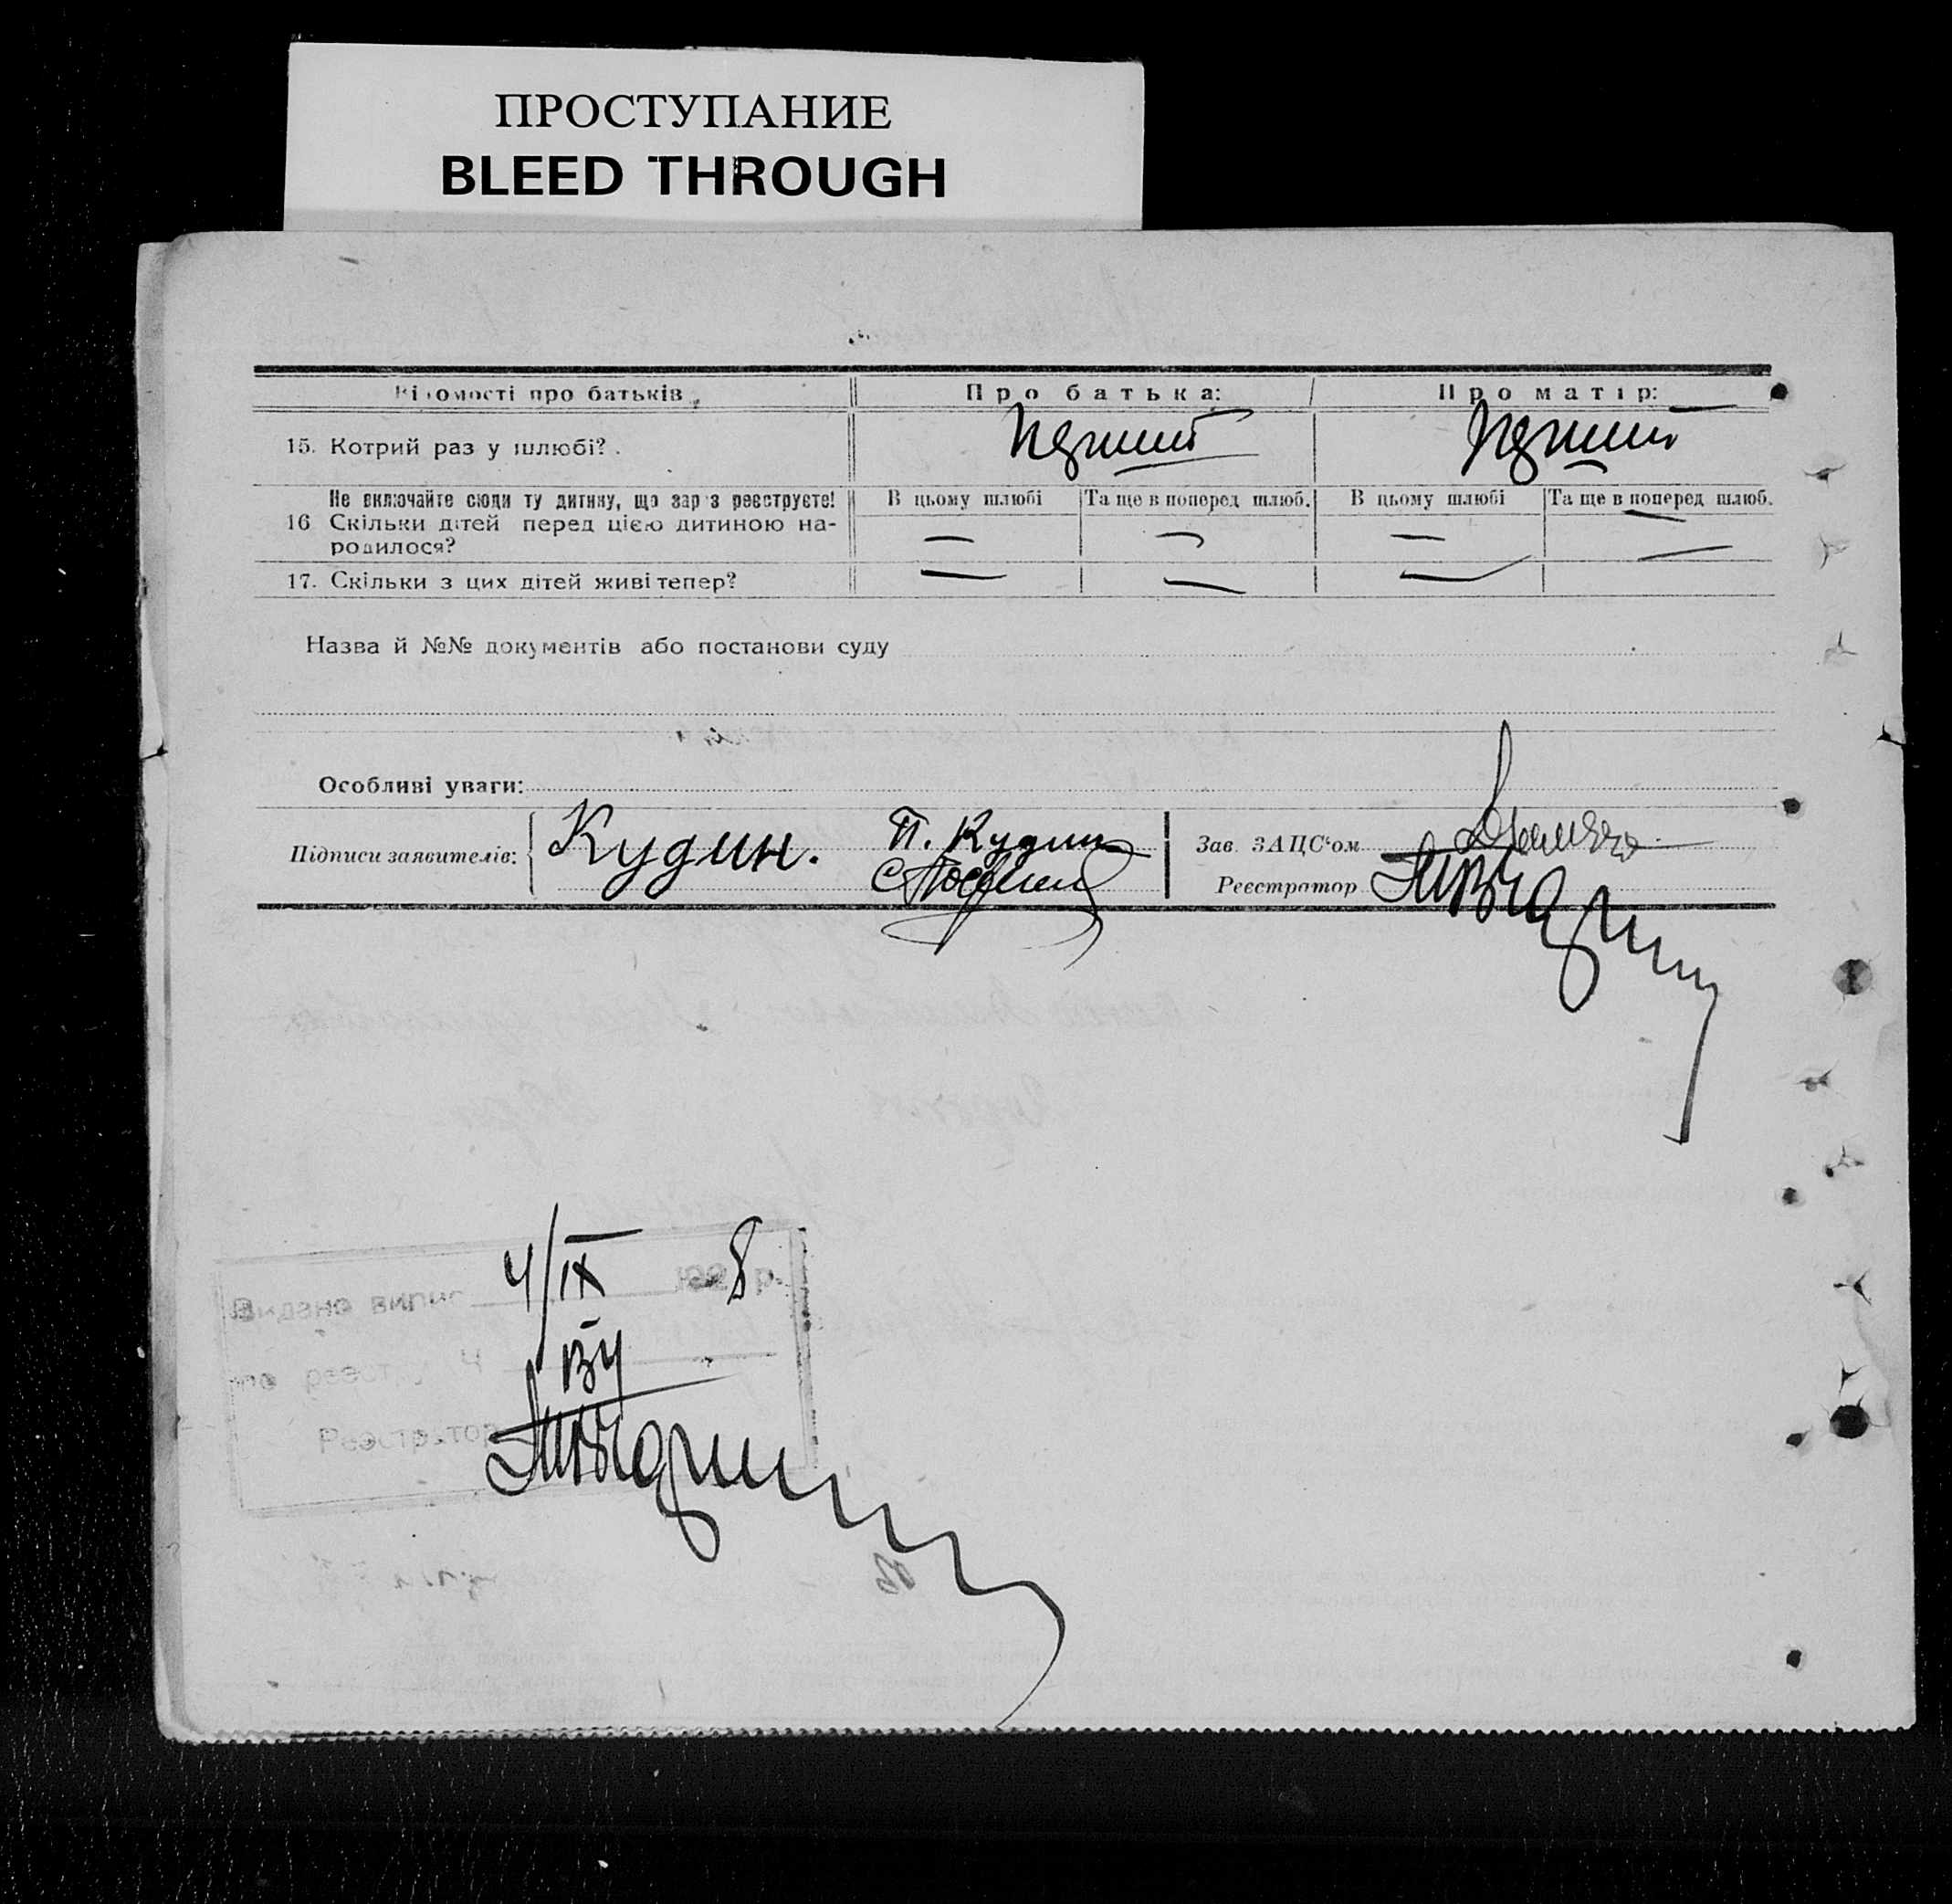 ПРОСТУПАНИЕ
BLEED THROUGH
Відомості про батьків
Про батька:
Про матір:
15. Котрий раз у шлюбі?
перший
перший
Не включайте сюди ту дитину, що зараз реєструєте!
В цьому шлюбі
Та ще в поперед шлюб.
В цьому шлюбі
Та ще в поперед шлюб.
16 Скільки дітей перед цією дитиною на-
родилося?
— — — —
17. Скільки з цих дітей живі тепер?
— — — —
Назва й №№ документів або постанови суду
Особливі уваги:
Підписи заявителів:
Кудин.
П. Кудин
Зав. ЗАЦС‘ом
Реєстратор
4/IX 8
Видано випис 192 р.
по реєстру Ч
Реєстратор